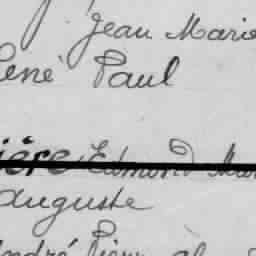 Jean Marie
René Paul
ière Edmond Mar
Auguste
André Pierre